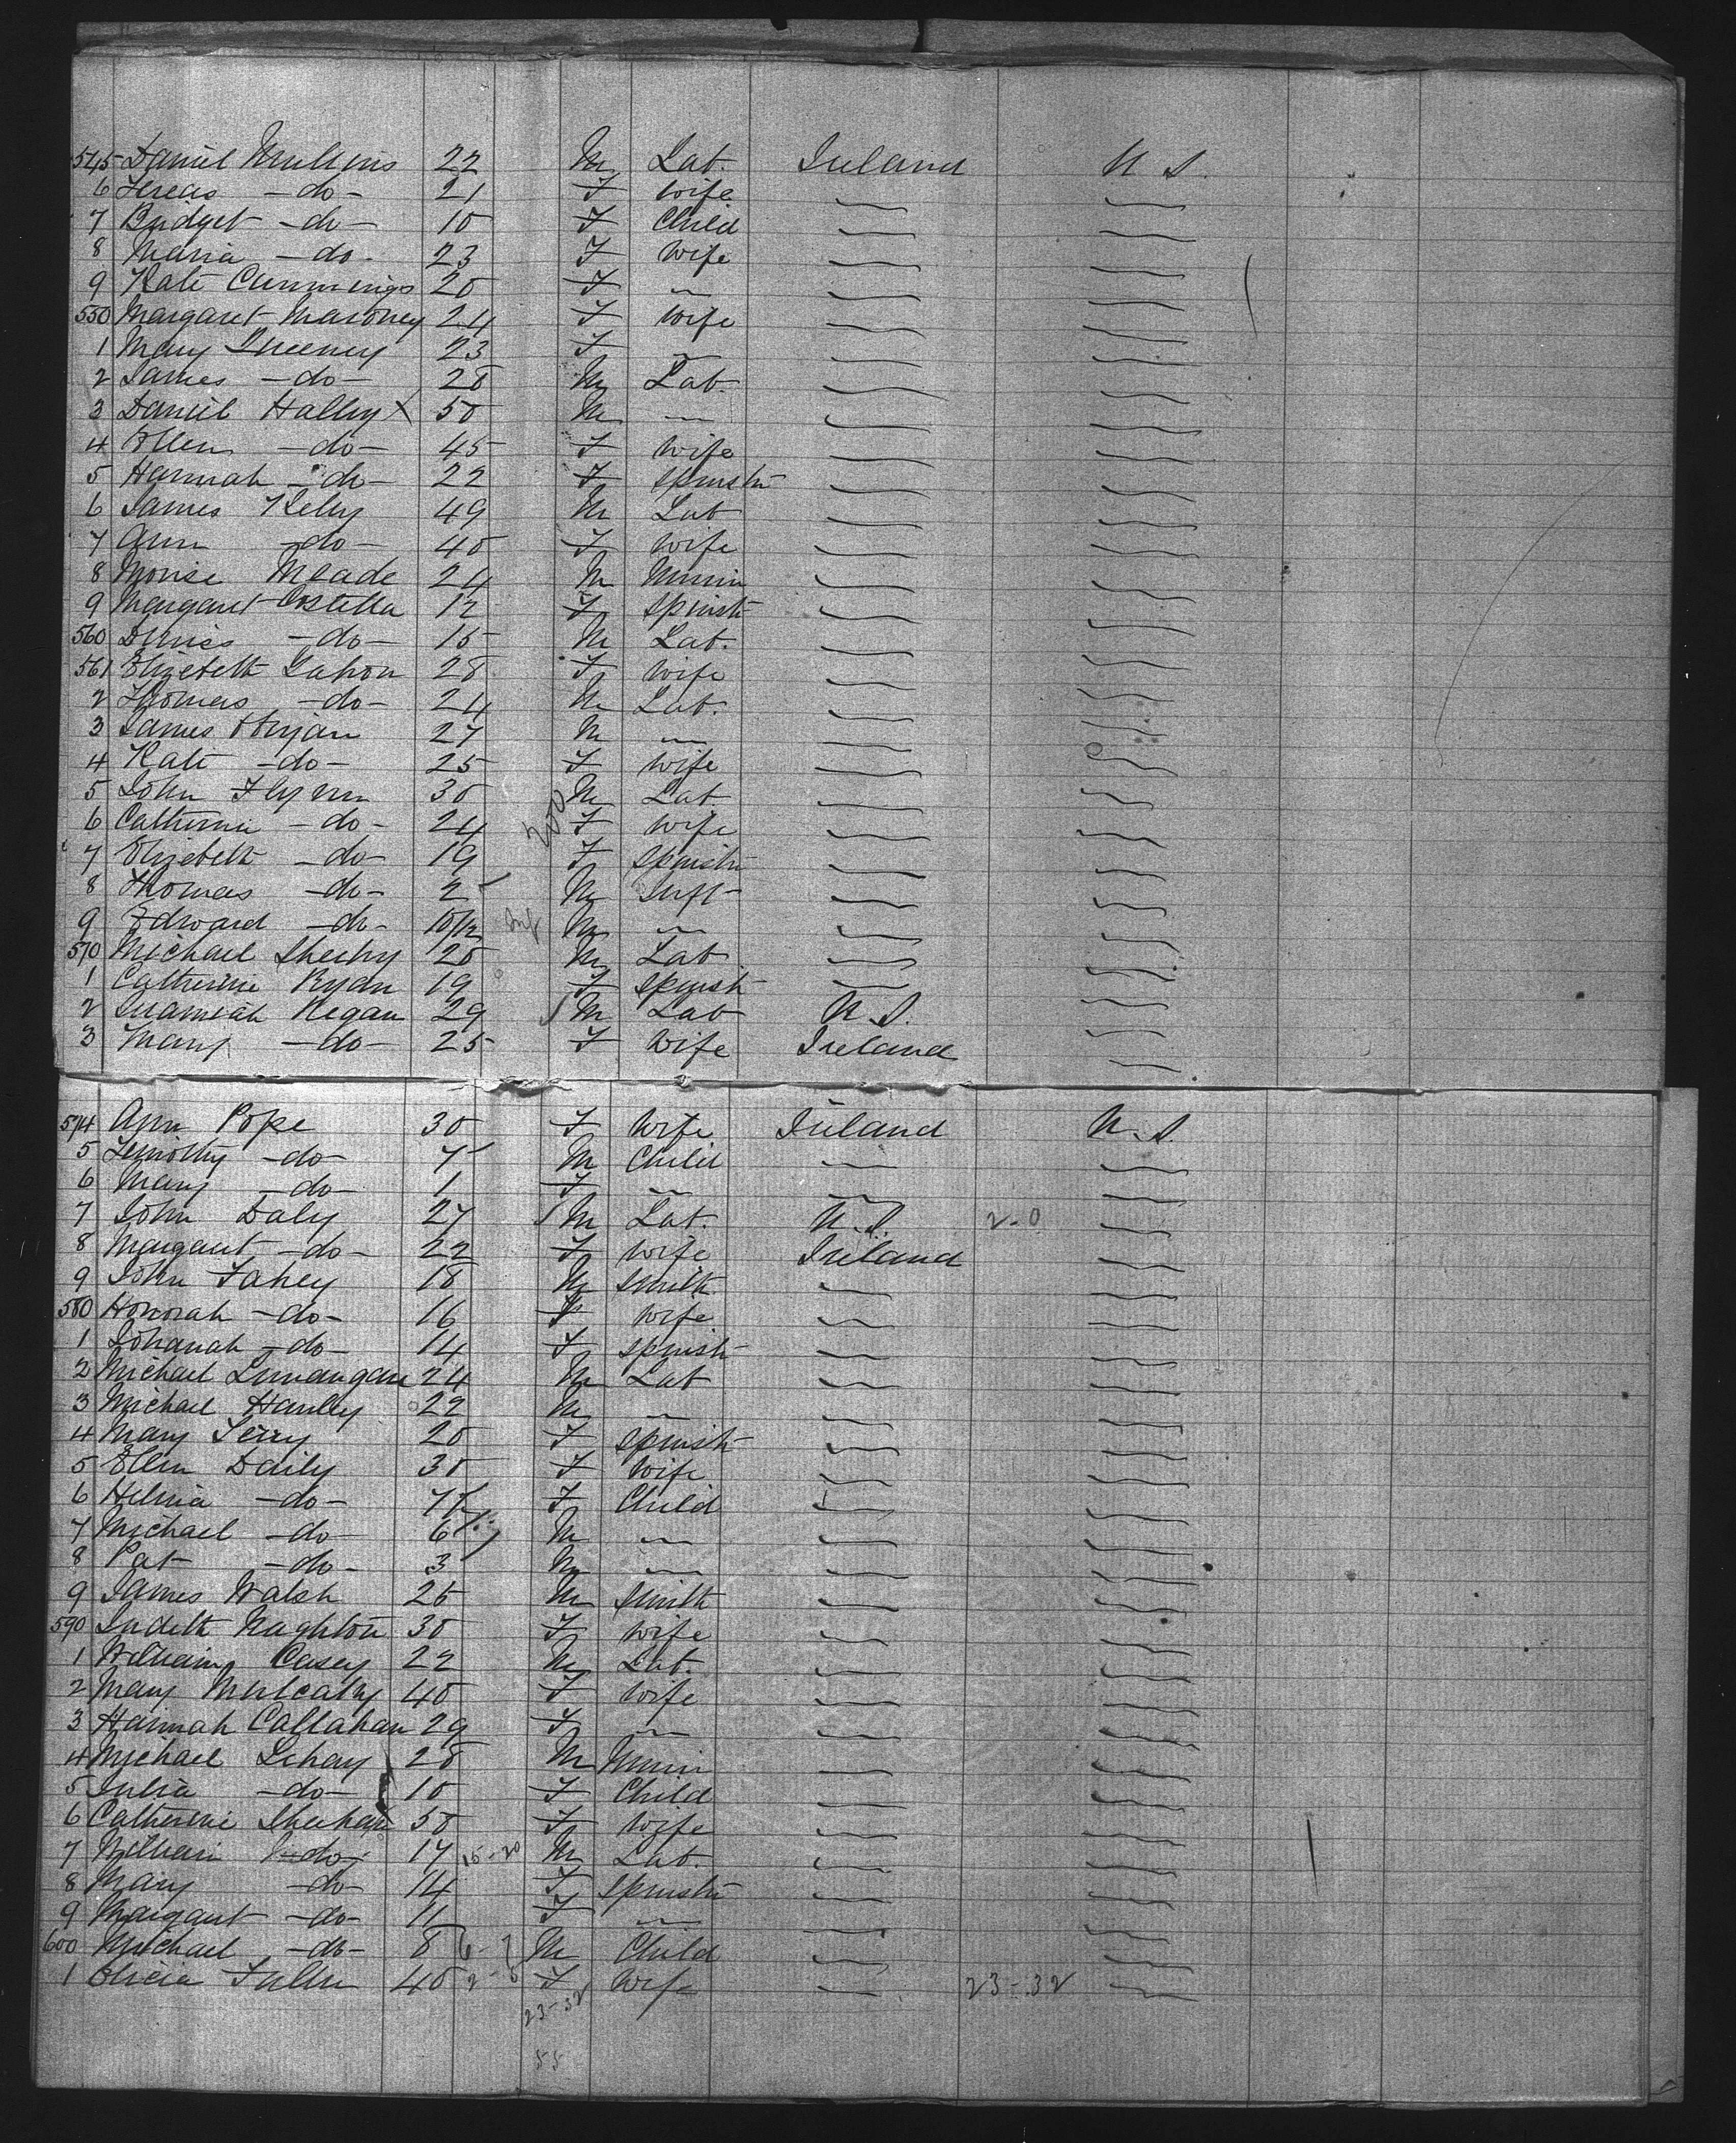 545 Daniel Mullins 22 M Lab. Ireland U.S.
6 -do- 21 F wife
7 Bridget -do- 10 F Child
8 Maria -do- 23 F wife
9 Kate Cummings 20 F
550 Margaret Maroney 24 F wife
1 Mary 23 F
2 James -do- 28 M Lab.
3 Daniel Halley X 50 M
4 Ellen -do- 45 F wife
5 Hannah -do- 22 F spinstr
6 James Kelly 49 M Lab
7 Ann -do- 40 F wife
8 Meade 24 M
9 Margaret Costella 12 F spinstr
560 Dennis -do- 15 M Lab.
561 Elizebeth 28 F wife
2 Thomas -do- 24 M Lab.
3 James 27 M
4 Kate -do- 25 F wife
5 John Flynn 30 M Lab.
6 Catherine -do- 24 200 F wife
7 Elizebeth -do- 19 F spinstr
8 Thomas -do- 2 M Inft
9 Edward -do- 10/12 inf M
570 Michael Sheehy 20 M Lab
1 Catherine Ryan 19 F spinstr
2 Regan 29 M Lab U.S.
3 Mary -do- 25 F wife Ireland
574 Ann Pope 30 F wife Ireland U.S.
5 Timothy -do- 7 M Child
6 Mary -do- 1 F
7 John Daly 27 M Lab. U.S. 2-0
8 Margaret -do- 22 F wife Ireland
9 John Fahey 18 M smith
580 Honorah -do- 16 F wife
1 Johanah -do- 14 F spinstr
2 Michael 24 M Lab
3 Michael Hanley 22 M
4 Mary Terry 20 F spinstr
5 Ellen Daily 30 F wife
6 -do- 7 F Child
7 Michael -do- 6 M
8 Pat -do- 3 M
9 James Walsh 26 M smith
590 Judith Naghton 30 F wife
1 William Casey 22 M Lab.
2 Mary Mulcahy 40 F wife
3 Hannah Callahan 29 F
4 Michael Lehay 28 M
5 Julia -do- 10 F Child
6 Catherine Sheehan 50 F wife
7 William -do- 17 15-20 M Lab.
8 Mary -do- 14 F spinstr
9 Margaret -do- 11 F
600 Michael -do- 8 M Child
1 40 F wife 23-32
23-32
55